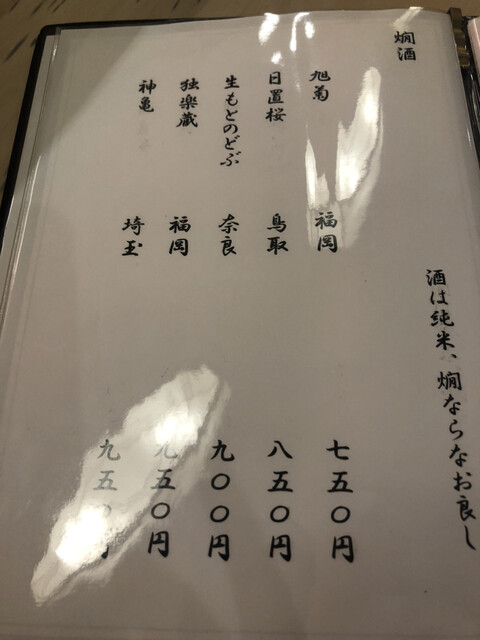 燗酒
酒は純米、燗ならなお良し
旭菊 福岡 七五〇円
日置桜 鳥取 八五〇円
生もとのどぶ 奈良 九〇〇円
独楽蔵 福岡 九五〇円
神亀 埼玉 九五〇円